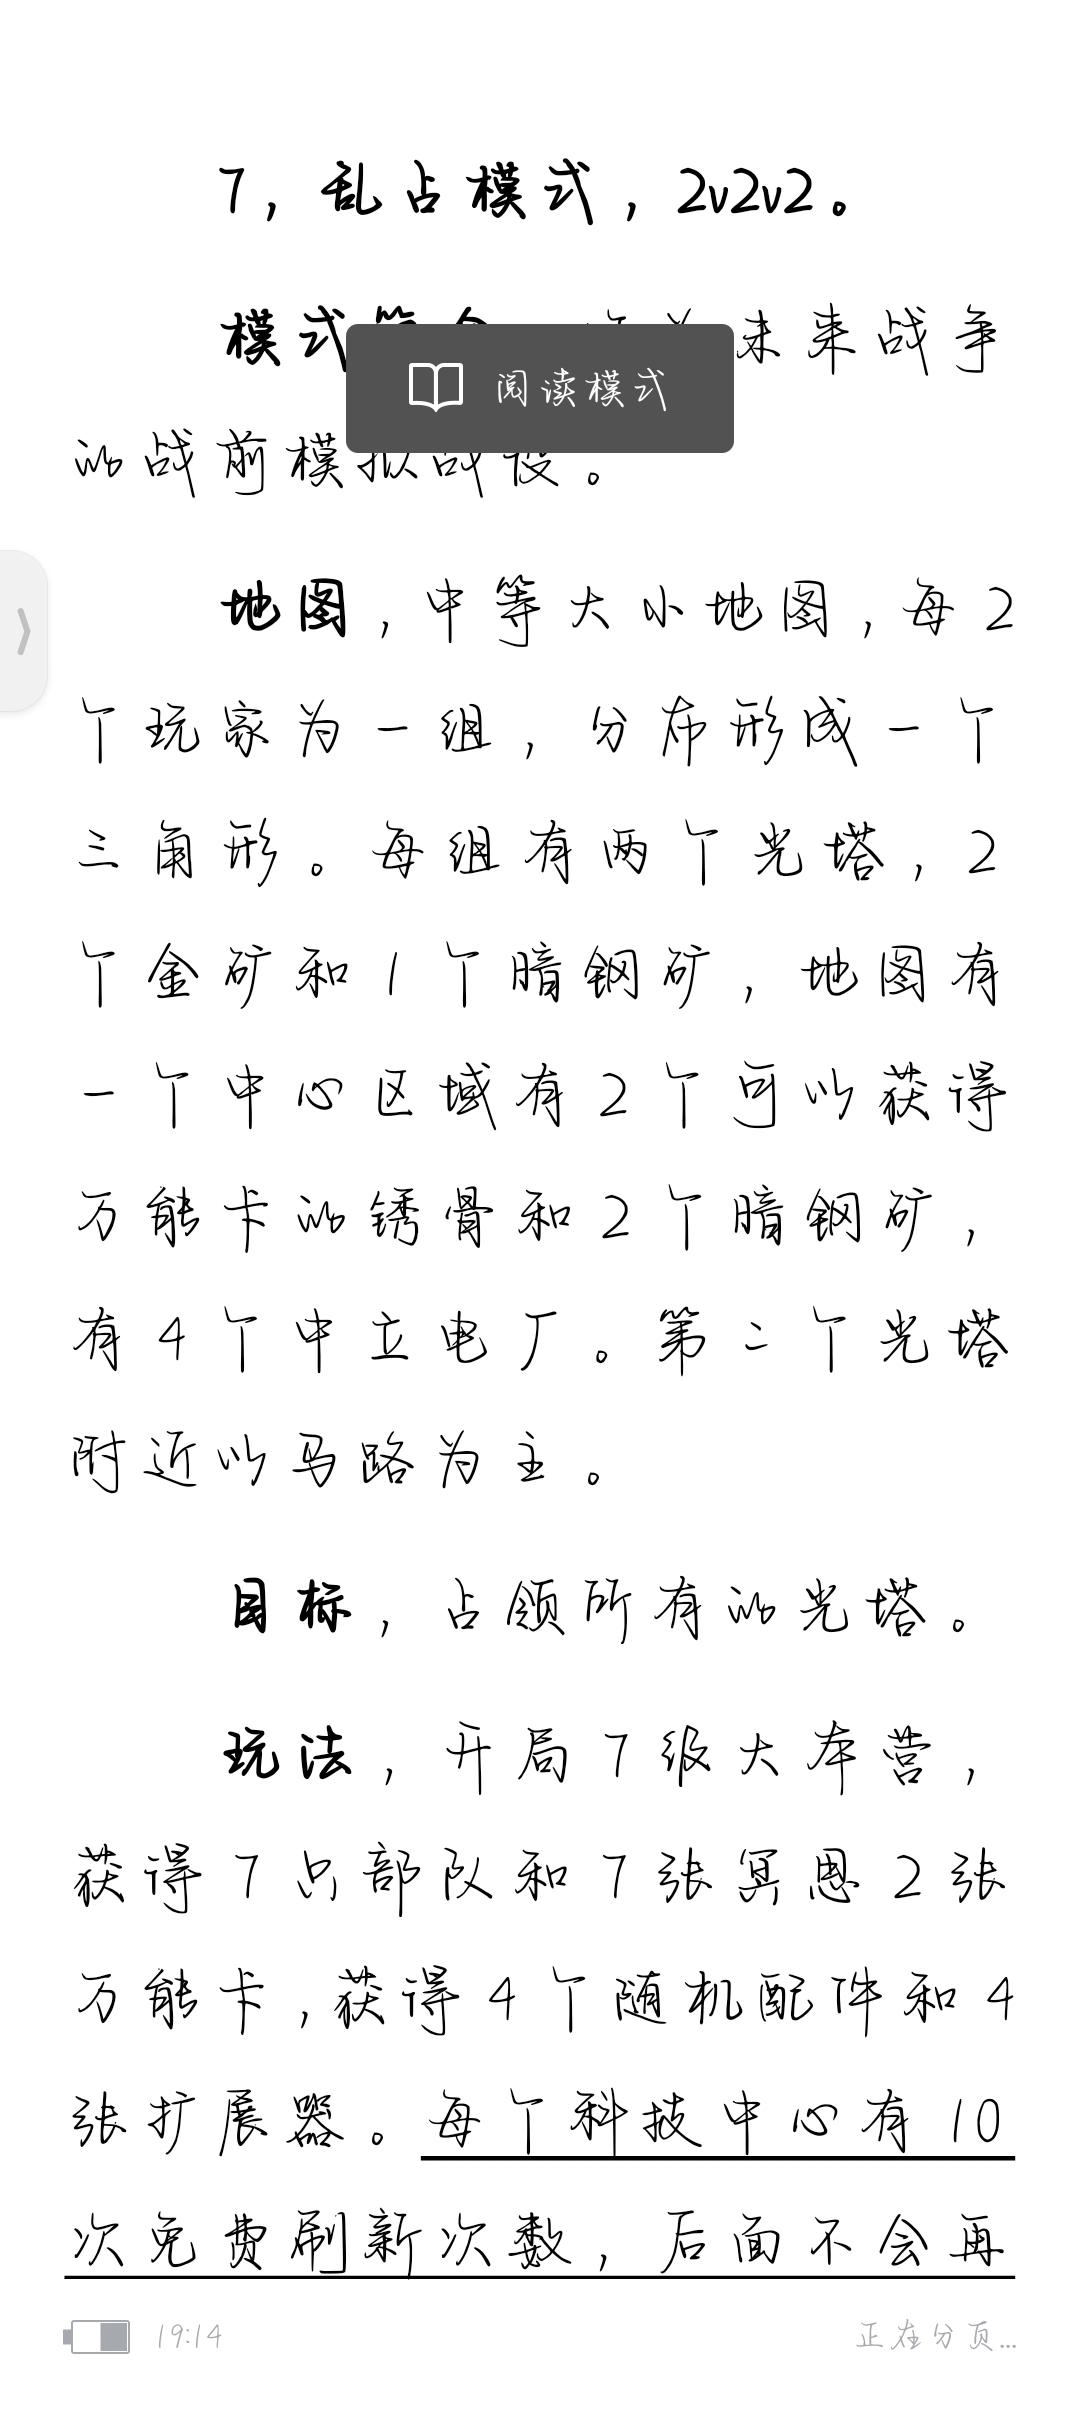 7，乱占模式，2v2v2。
模式简介
未来战争
阅读模式
的战前模拟战役。
地图，中等大小地图，每2
个玩家为一组，分布形成一个
三角形。每组有两个光塔，2
个金矿和1个暗钢矿，地图有
一个中心区域有2个可以获得
万能卡的锈骨和2个暗钢矿，
有4个中立电厂。第二个光塔
附近以马路为主。
目标，占领所有的光塔。
玩法，开局7级大本营，
获得7只部队和7张冥恩2张
万能卡，获得4个随机配件和4
张扩展器。每个科技中心有10
次免费刷新次数，后面不会再
19:14
正在分页...